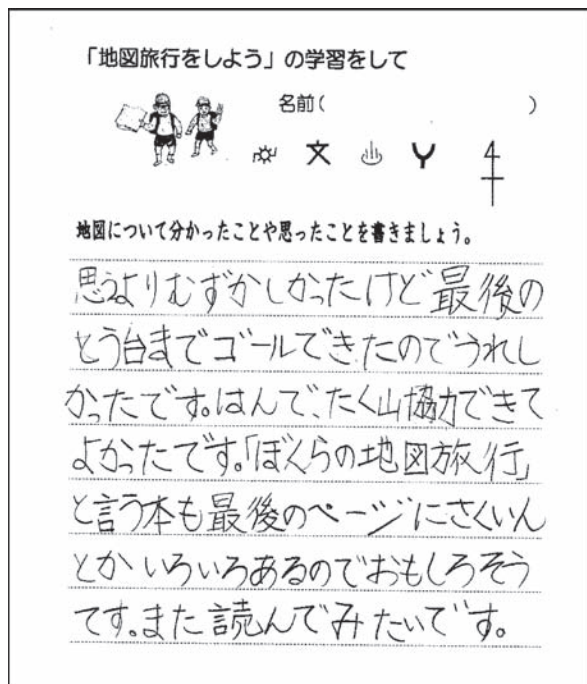 「地図旅行をしよう」の学習をして
名前(　　　　　　　　)
文
地図について分かったことや思ったことを書きましょう。
思うよりむずかしかったけど最後の
とう台までゴールできたのでうれし
かったです。はんで、たく山協力できて
よかったです。「ぼくらの地図旅行」
と言う本も最後のページにさくいん
とかいろいろあるのでおもしろそう
です。また読んでみたいです。